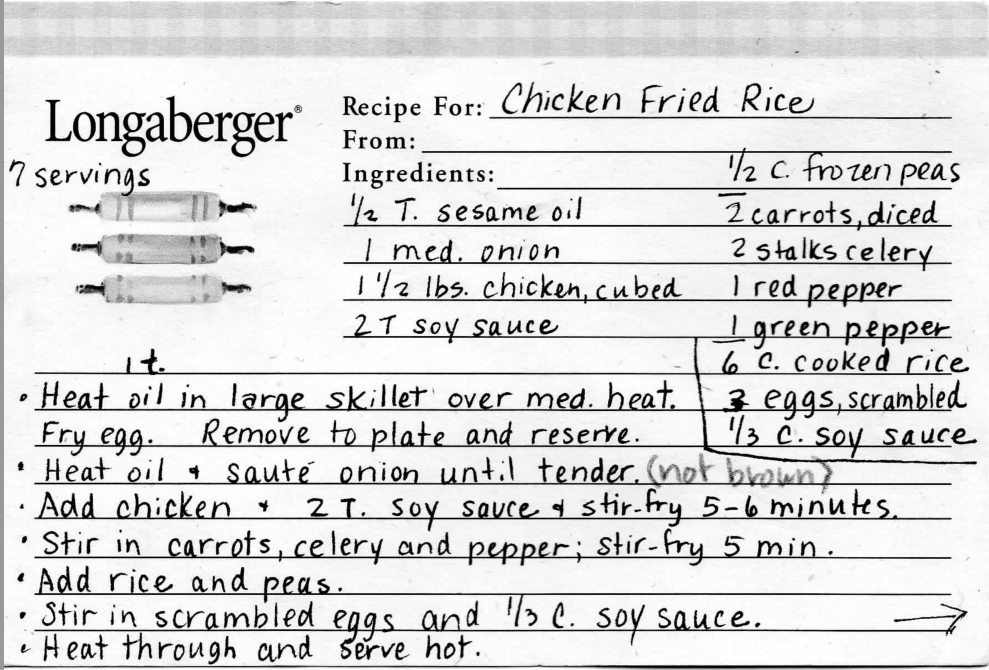 Longaberger®
Recipe For: Chicken Fried Rice
From:
7 servings
Ingredients:
1/2 T. sesame oil
1 med. onion
1 1/2 lbs. chicken, cubed
2 T soy sauce
1/2 C. frozen peas
2 carrots, diced
2 stalks celery
1 red pepper
1 green pepper
6 C. cooked rice
3 eggs, scrambled
1/3 C. soy sauce
1 t.
• Heat oil in large skillet over med. heat.
Fry egg. Remove to plate and reserve.
• Heat oil + sauté onion until tender. (not brown)
• Add chicken + 2 T. soy sauce & stir-fry 5-6 minutes.
• Stir in carrots, celery and pepper; stir-fry 5 min.
• Add rice and peas.
• Stir in scrambled eggs and 1/3 C. soy sauce. →
• Heat through and serve hot.